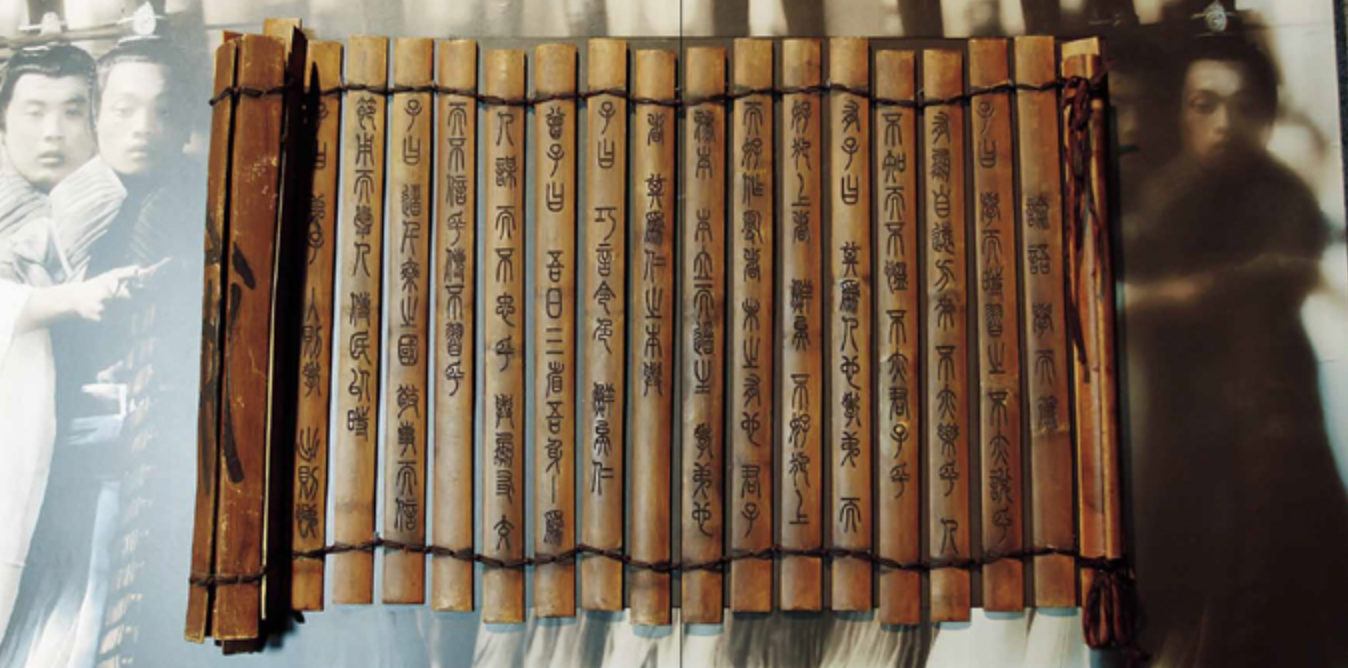 論語 學而篇
子曰 學而時習之 不亦說乎
有朋自遠方來 不亦樂乎 人
不知而不慍 不亦君子乎
有子曰 其為人也孝弟 而
好犯上者 鮮矣 不好犯上
而好作亂者 未之有也 君子
務本 本立而道生 孝弟也
者 其為仁之本與
子曰 巧言令色 鮮矣仁
曾子曰 吾日三省吾身 為
人謀 而不忠乎 與朋友交
而不信乎 傳不習乎
子曰 道千乘之國 敬事而信
節用而愛人 使民以時
子曰 弟子 入則孝 出則悌